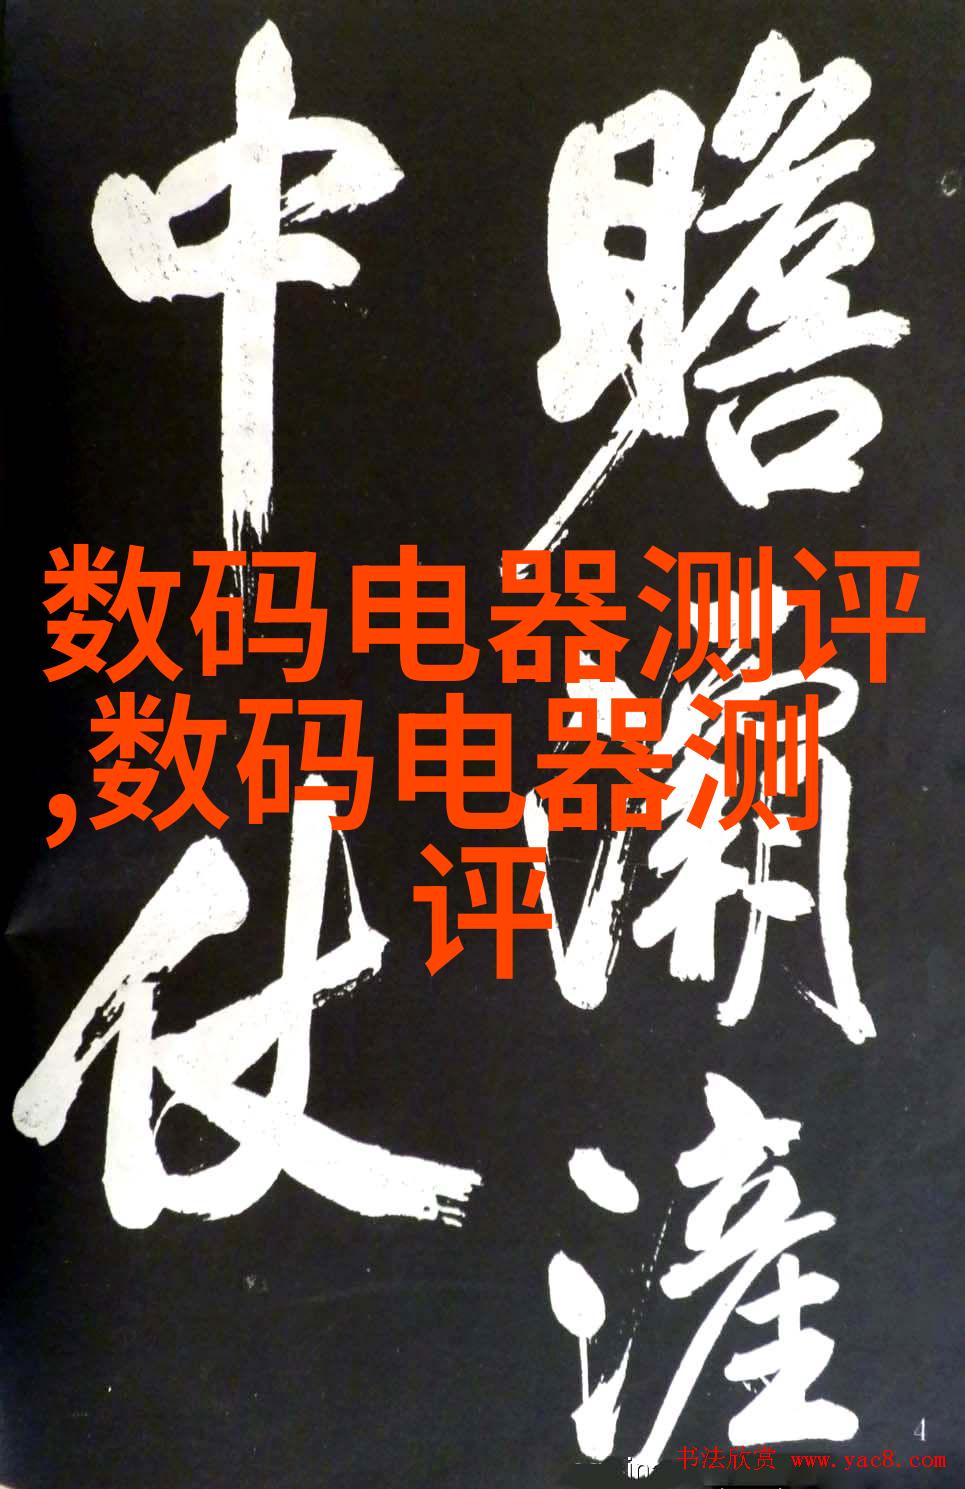 瞻灞滻
中仗
数码电器测评
,数码电器测
评
4
书法欣赏 www.yac8.com